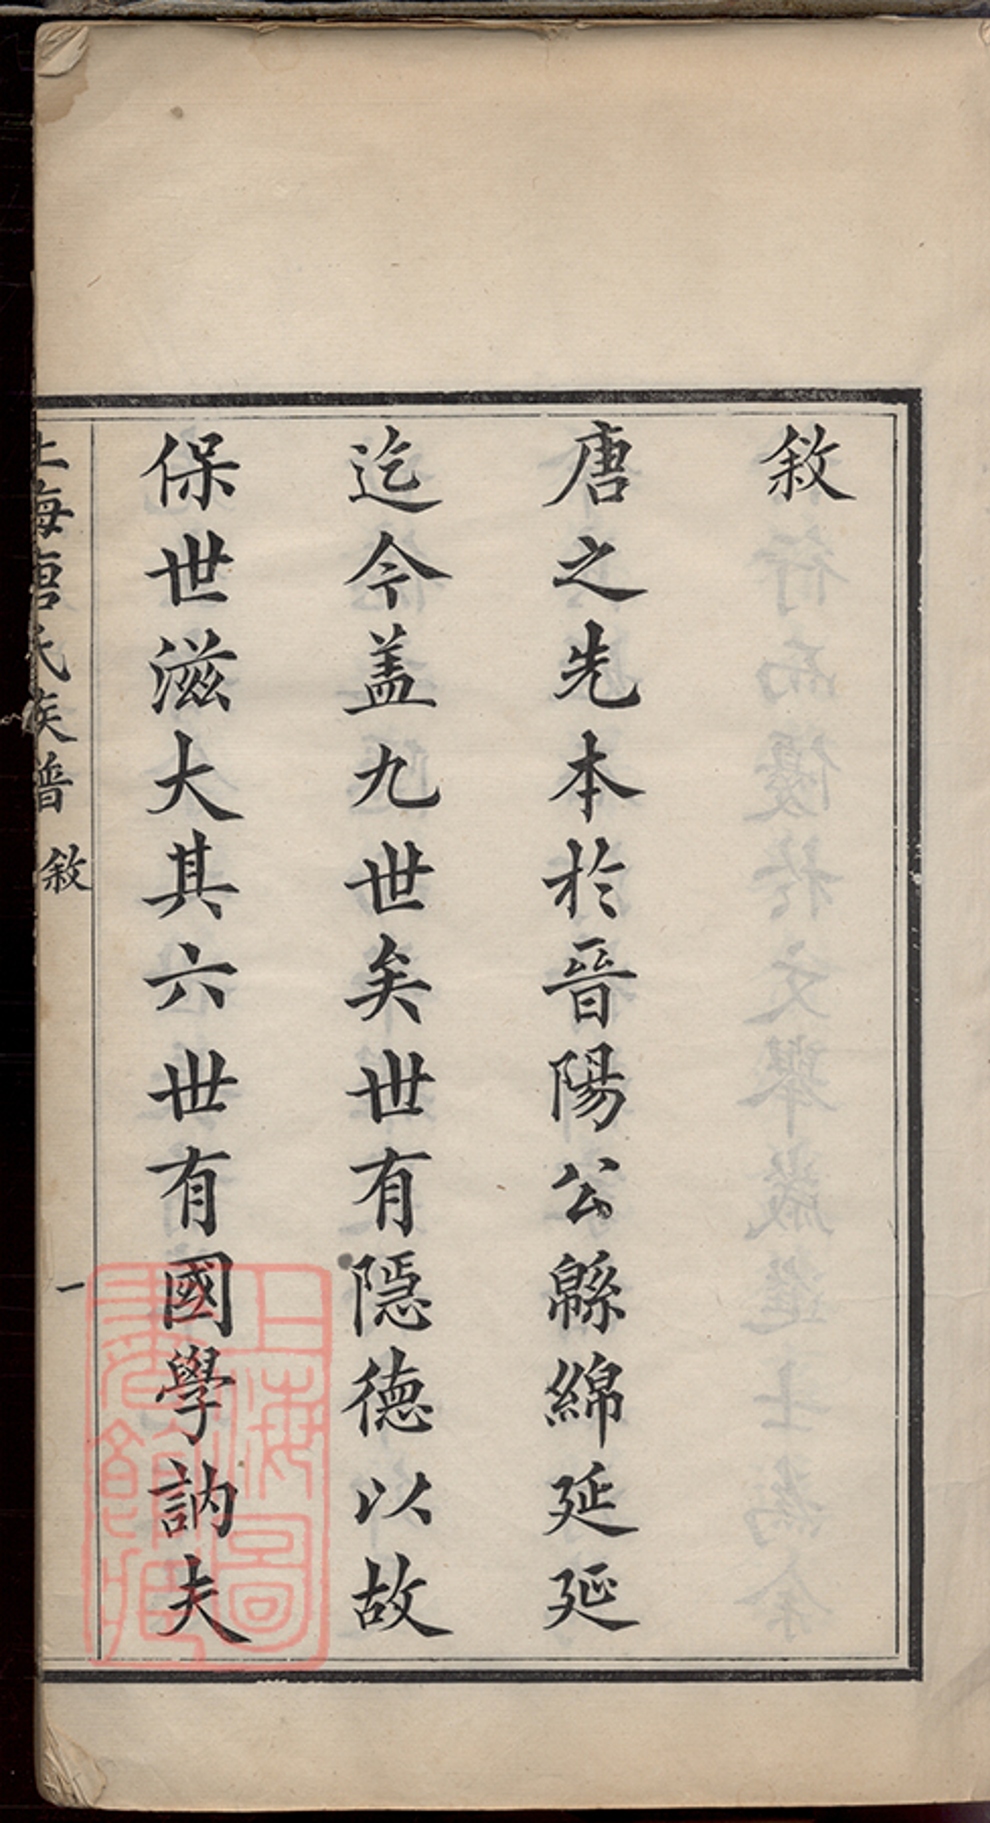 敘
唐之先本於晉陽公緜綿延延
迄今盖九世矣世有隱德以故
保世滋大其六世有國學訥夫
上海唐氏族譜 敘 一
上海圖書館藏